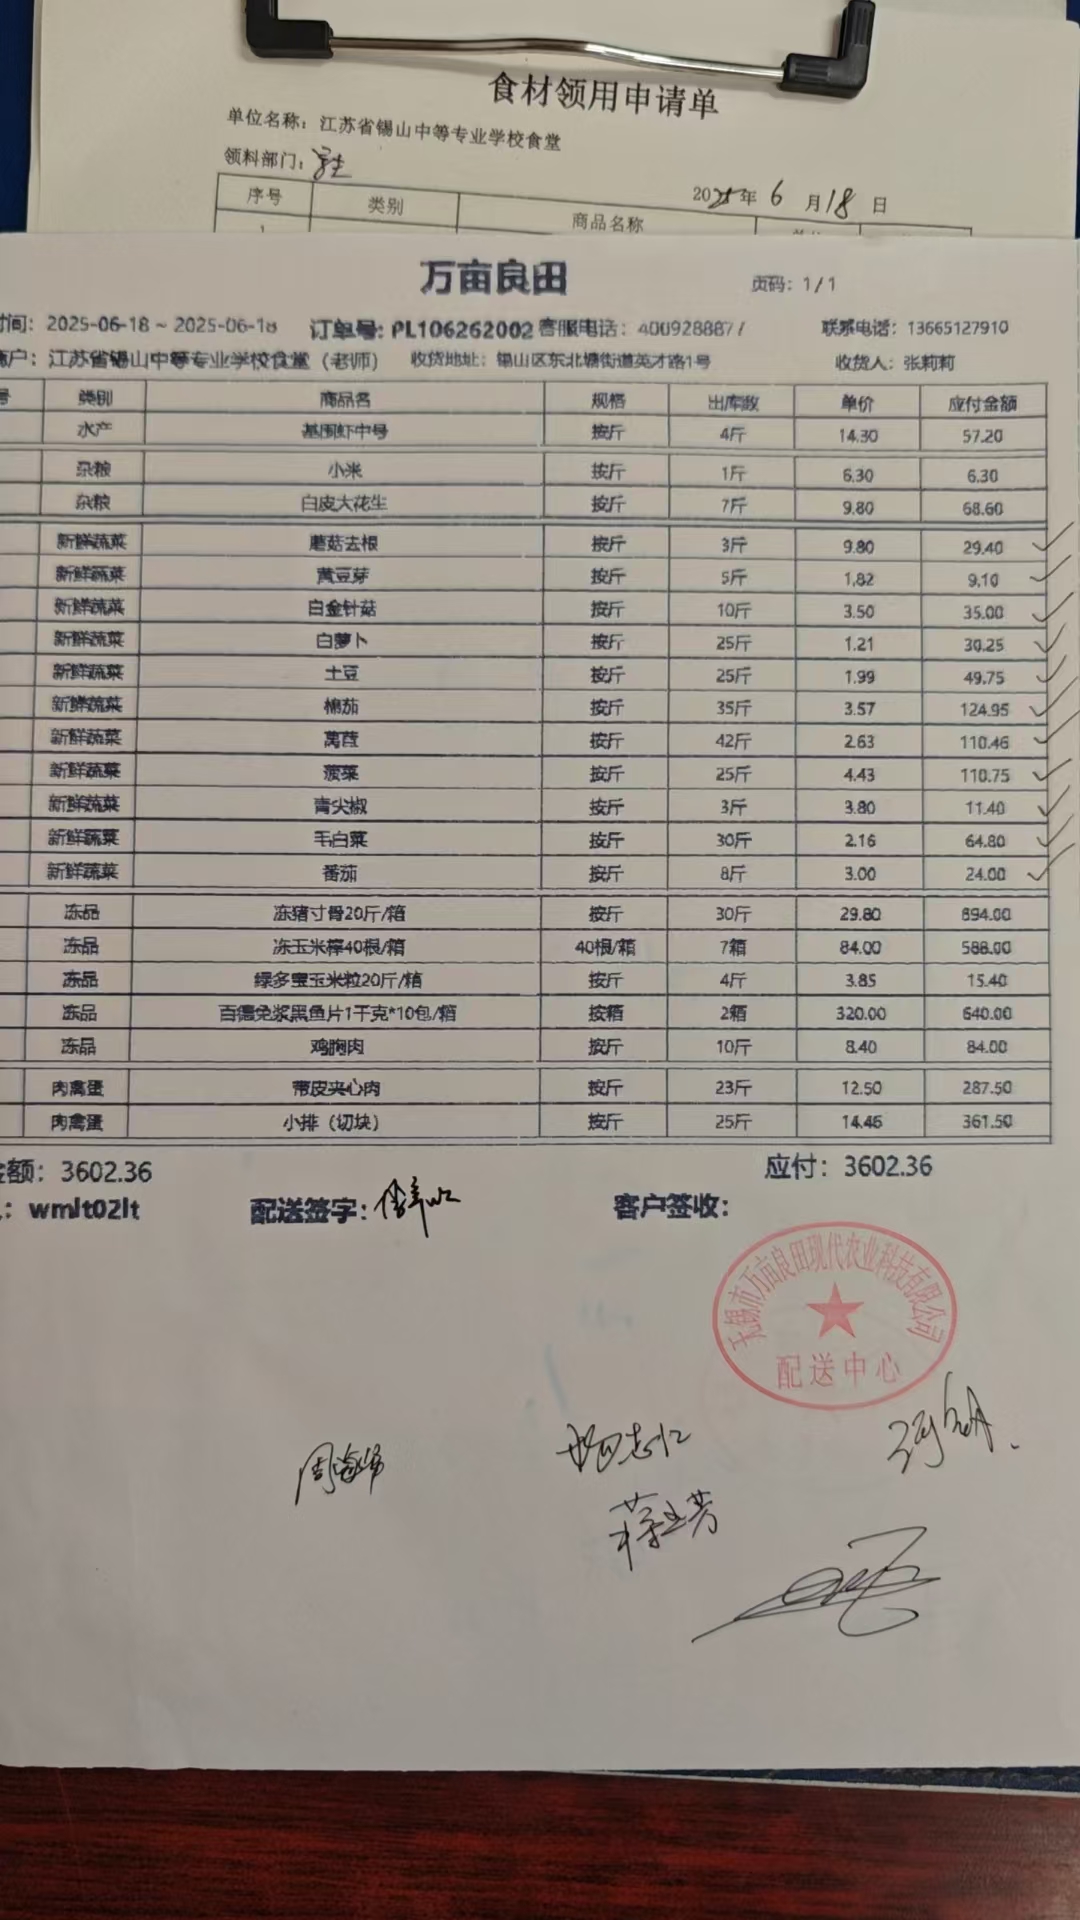 食材领用申请单
单位名称：江苏省锡山中等专业学校食堂
领料部门：
2025年 6 月 18 日
序号 类别 商品名称
1
万亩良田
页码：1/1
时间：2025-06-18 ~ 2025-06-18 订单号: PL106262002 客服电话：4009288877 联系电话：13665127910
商户：江苏省锡山中等专业学校食堂（老师） 收货地址：锡山区东北塘街道英才路1号 收货人：张莉莉
号 类别 商品名 规格 出库数 单价 应付金额
水产 基围虾中号 按斤 4斤 14.30 57.20
杂粮 小米 按斤 1斤 6.30 6.30
杂粮 白皮大花生 按斤 7斤 9.80 68.60
新鲜蔬菜 蘑菇去根 按斤 3斤 9.80 29.40
新鲜蔬菜 黄豆芽 按斤 5斤 1.82 9.10
新鲜蔬菜 白金针菇 按斤 10斤 3.50 35.00
新鲜蔬菜 白萝卜 按斤 25斤 1.21 30.25
新鲜蔬菜 土豆 按斤 25斤 1.99 49.75
新鲜蔬菜 糯茄 按斤 35斤 3.57 124.95
新鲜蔬菜 莴苣 按斤 42斤 2.63 110.46
新鲜蔬菜 菠菜 按斤 25斤 4.43 110.75
新鲜蔬菜 青尖椒 按斤 3斤 3.80 11.40
新鲜蔬菜 毛白菜 按斤 30斤 2.16 64.80
新鲜蔬菜 番茄 按斤 8斤 3.00 24.00
冻品 冻猪寸骨20斤/箱 按斤 30斤 29.80 894.00
冻品 冻玉米棒40根/箱 40根/箱 7箱 84.00 588.00
冻品 绿多宝玉米粒20斤/箱 按斤 4斤 3.85 15.40
冻品 百德免浆黑鱼片1千克*10包/箱 按箱 2箱 320.00 640.00
冻品 鸡胸肉 按斤 10斤 8.40 84.00
肉禽蛋 带皮夹心肉 按斤 23斤 12.50 287.50
肉禽蛋 小排（切块） 按斤 25斤 14.46 361.50
金额：3602.36 应付：3602.36
：wmlt02lt 配送签字： 客户签收：
无锡市万亩良田现代农业科技有限公司
配送中心
周海华 杨志仁